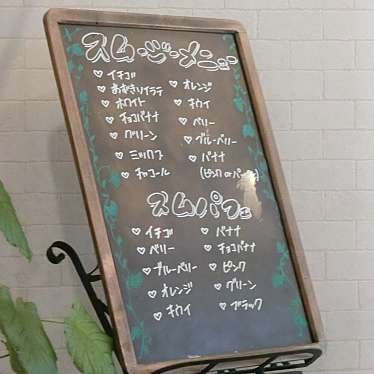 スムージーメニュー
♡イチゴ
♡オレンジ
♡ホワイト
♡キウイ
♡チョコバナナ
♡ベリー
♡グリーン
♡ブルーベリー
♡ミックス
♡バナナ
♡チャコール
スムパフェ
♡イチゴ ♡バナナ
♡ベリー ♡チョコバナナ
♡ブルーベリー ♡ピンク
♡オレンジ ♡グリーン
♡キウイ ♡ブラック